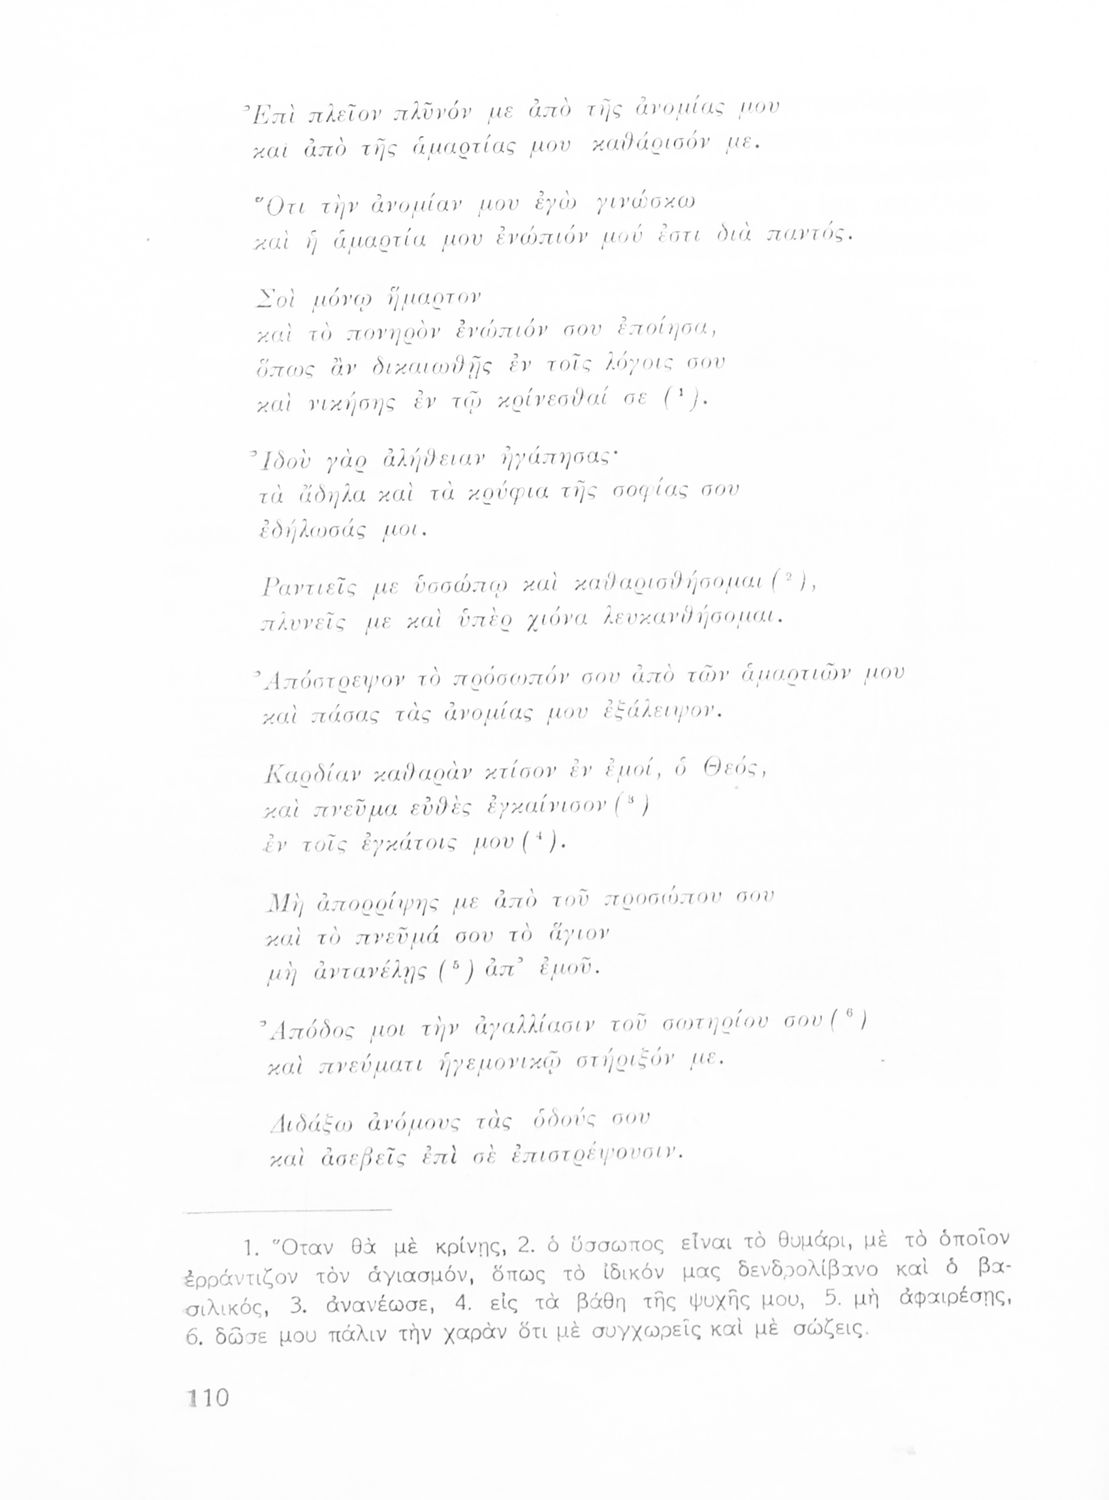 Ἐπὶ πλεῖον πλῦνόν με ἀπὸ τῆς ἀνομίας μου
καὶ ἀπὸ τῆς ἁμαρτίας μου καθάρισόν με.
Ὅτι τὴν ἀνομίαν μου ἐγὼ γινώσκω
καὶ ἡ ἁμαρτία μου ἐνώπιόν μού ἐστι διὰ παντός.
Σοὶ μόνῳ ἥμαρτον
καὶ τὸ πονηρὸν ἐνώπιόν σου ἐποίησα,
ὅπως ἂν δικαιωθῇς ἐν τοῖς λόγοις σου
καὶ νικήσῃς ἐν τῷ κρίνεσθαί σε (¹).
Ἰδοὺ γὰρ ἀλήθειαν ἠγάπησας·
τὰ ἄδηλα καὶ τὰ κρύφια τῆς σοφίας σου
ἐδήλωσάς μοι.
Ραντιεῖς με ὑσσώπῳ καὶ καθαρισθήσομαι (²),
πλυνεῖς με καὶ ὑπὲρ χιόνα λευκανθήσομαι.
Ἀπόστρεψον τὸ πρόσωπόν σου ἀπὸ τῶν ἁμαρτιῶν μου
καὶ πάσας τὰς ἀνομίας μου ἐξάλειψον.
Καρδίαν καθαρὰν κτίσον ἐν ἐμοί, ὁ Θεός,
καὶ πνεῦμα εὐθὲς ἐγκαίνισον (³)
ἐν τοῖς ἐγκάτοις μου (⁴).
Μὴ ἀπορρίψῃς με ἀπὸ τοῦ προσώπου σου
καὶ τὸ πνεῦμά σου τὸ ἅγιον
μὴ ἀντανέλῃς (⁵) ἀπ᾿ ἐμοῦ.
Ἀπόδος μοι τὴν ἀγαλλίασιν τοῦ σωτηρίου σου (⁶)
καὶ πνεύματι ἡγεμονικῷ στήριξόν με.
Διδάξω ἀνόμους τὰς ὁδούς σου
καὶ ἀσεβεῖς ἐπὶ σὲ ἐπιστρέψουσιν.
1. Ὅταν θὰ μὲ κρίνῃς, 2. ὁ ὕσσωπος εἶναι τὸ θυμάρι, μὲ τὸ ὁποῖον
ἐρράντιζον τὸν ἁγιασμόν, ὅπως τὸ ἰδικόν μας δενδρολίβανο καὶ ὁ βα-
σιλικός, 3. ἀνανέωσε, 4. εἰς τὰ βάθη τῆς ψυχῆς μου, 5. μὴ ἀφαιρέσῃς,
6. δῶσε μου πάλιν τὴν χαρὰν ὅτι μὲ συγχωρεῖς καὶ μὲ σώζεις.
110